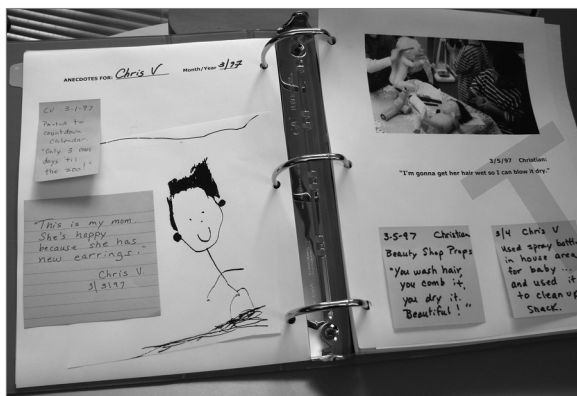 ANECDOTES FOR: Chris V Month/Year 3/97
CV 3-1-97
Pointed to
countdown
calendar.
"Only 3 more
days til
the zoo!"
"This is my mom.
She's happy
because she has
new earrings."
Chris V.
3/3/97
3/5/97 Christian:
"I'm gonna get her hair wet so I can blow it dry."
3-5-97 Christian
Beauty Shop Props
"You wash hair,
you comb it,
you dry it.
Beautiful!"
3/4 Chris V
Used spray bottle
in house area
for baby...
and used it
to clean up
snack.